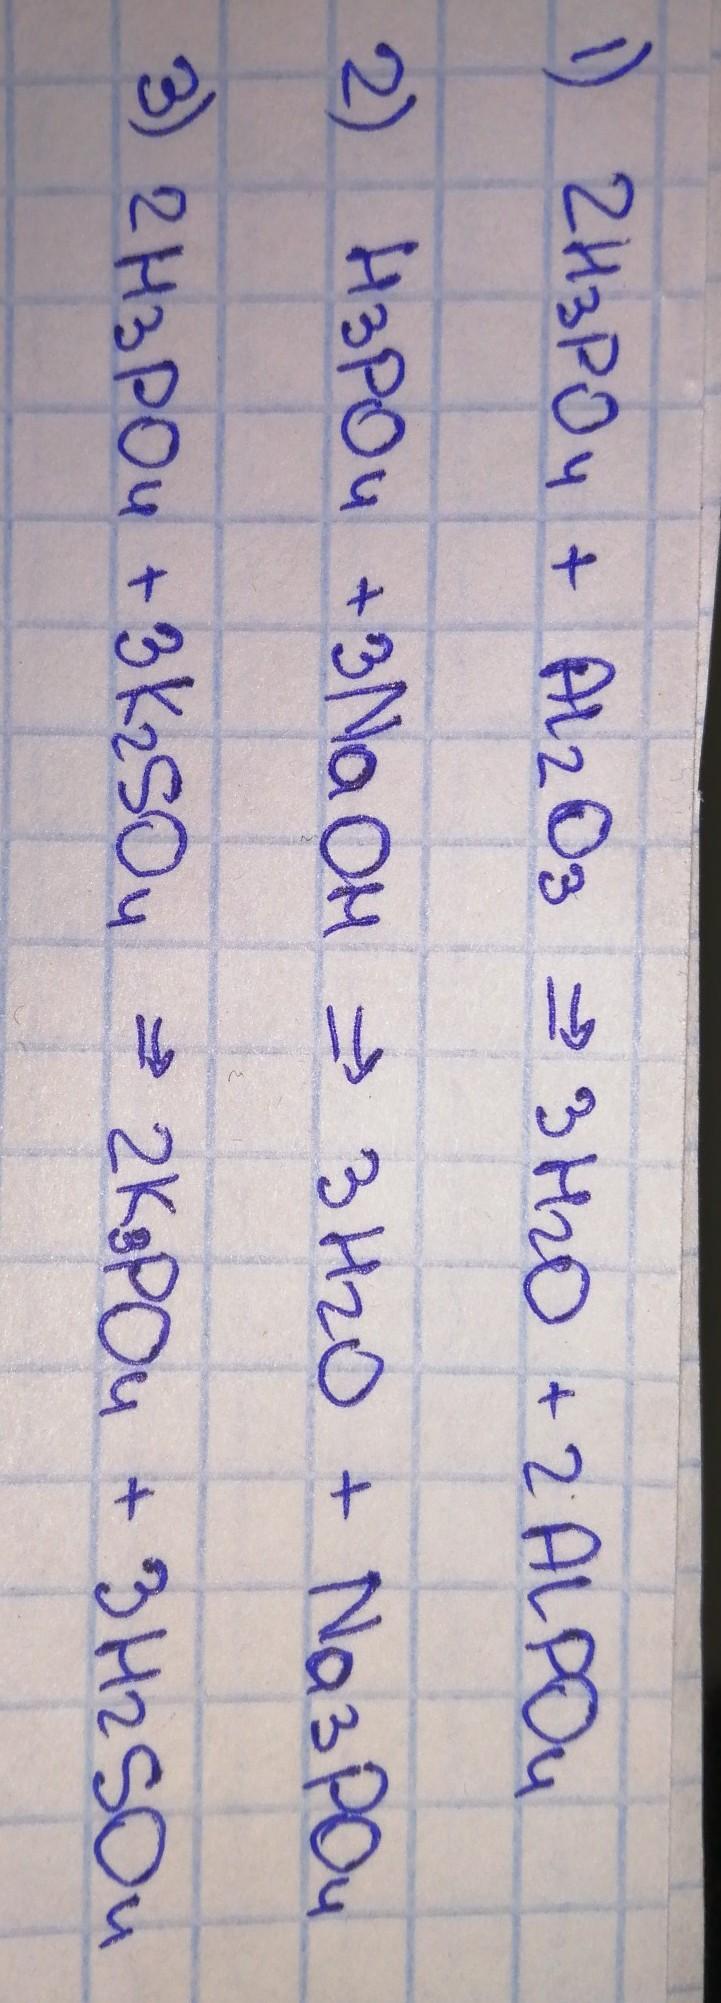 1) 2H3PO4 + Al2O3 ⇒ 3H2O + 2AlPO4
2) H3PO4 + 3NaOH ⇒ 3H2O + Na3PO4
3) 2H3PO4 + 3K2SO4 ⇒ 2K3PO4 + 3H2SO4